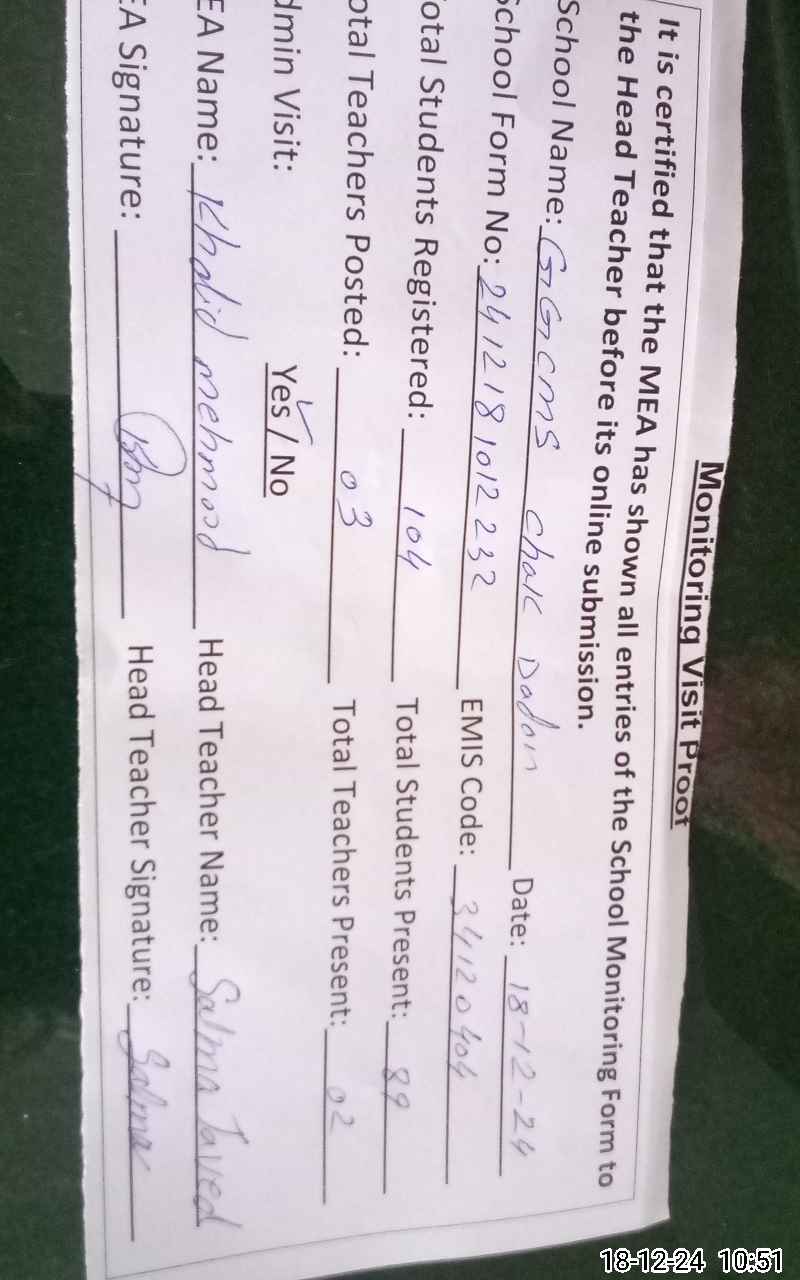 Monitoring Visit Proof
It is certified that the MEA has shown all entries of the School Monitoring Form to
the Head Teacher before its online submission.
School Name: GGCMS Chak Dadan Date: 18-12-24
School Form No: 2412181012232 EMIS Code: 34120404
otal Students Registered: 104 Total Students Present: 89
otal Teachers Posted: 03 Total Teachers Present: 02
dmin Visit: Yes / No
EA Name: Khalid mehmood Head Teacher Name: Salma Javed
EA Signature: Head Teacher Signature: Salma
18-12-24 10:51